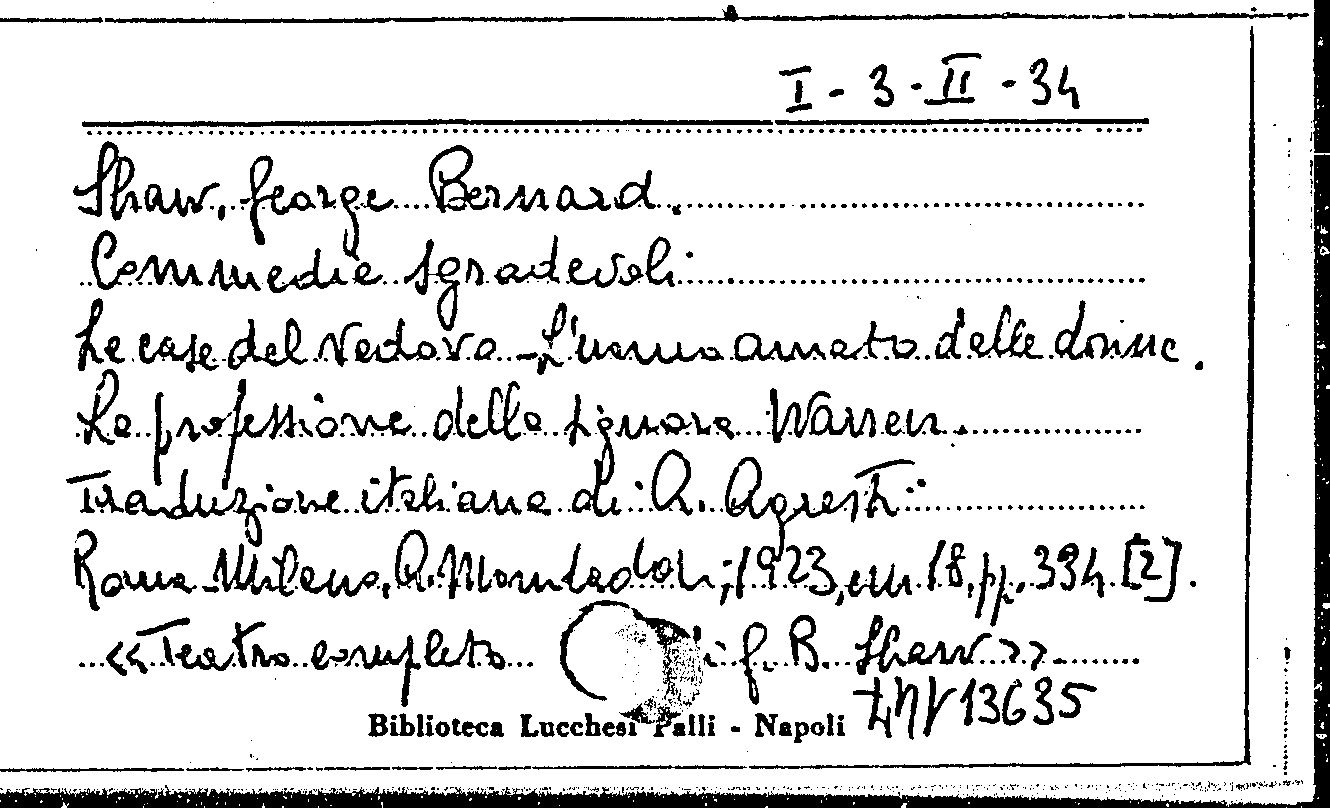 I - 3 - II - 34
Shaw, George Bernard.
Commedie sgradevoli
Le case del vedovo - L'uomo amato dalle donne.
La professione della signora Warren.
Traduzione italiana di A. Agresti
Roma-Milano, A. Mondadori, 1923, in 18, pp. 394 [2].
«Teatro completo di G. B. Shaw»
Inv 13635
Biblioteca Lucchesi Palli - Napoli